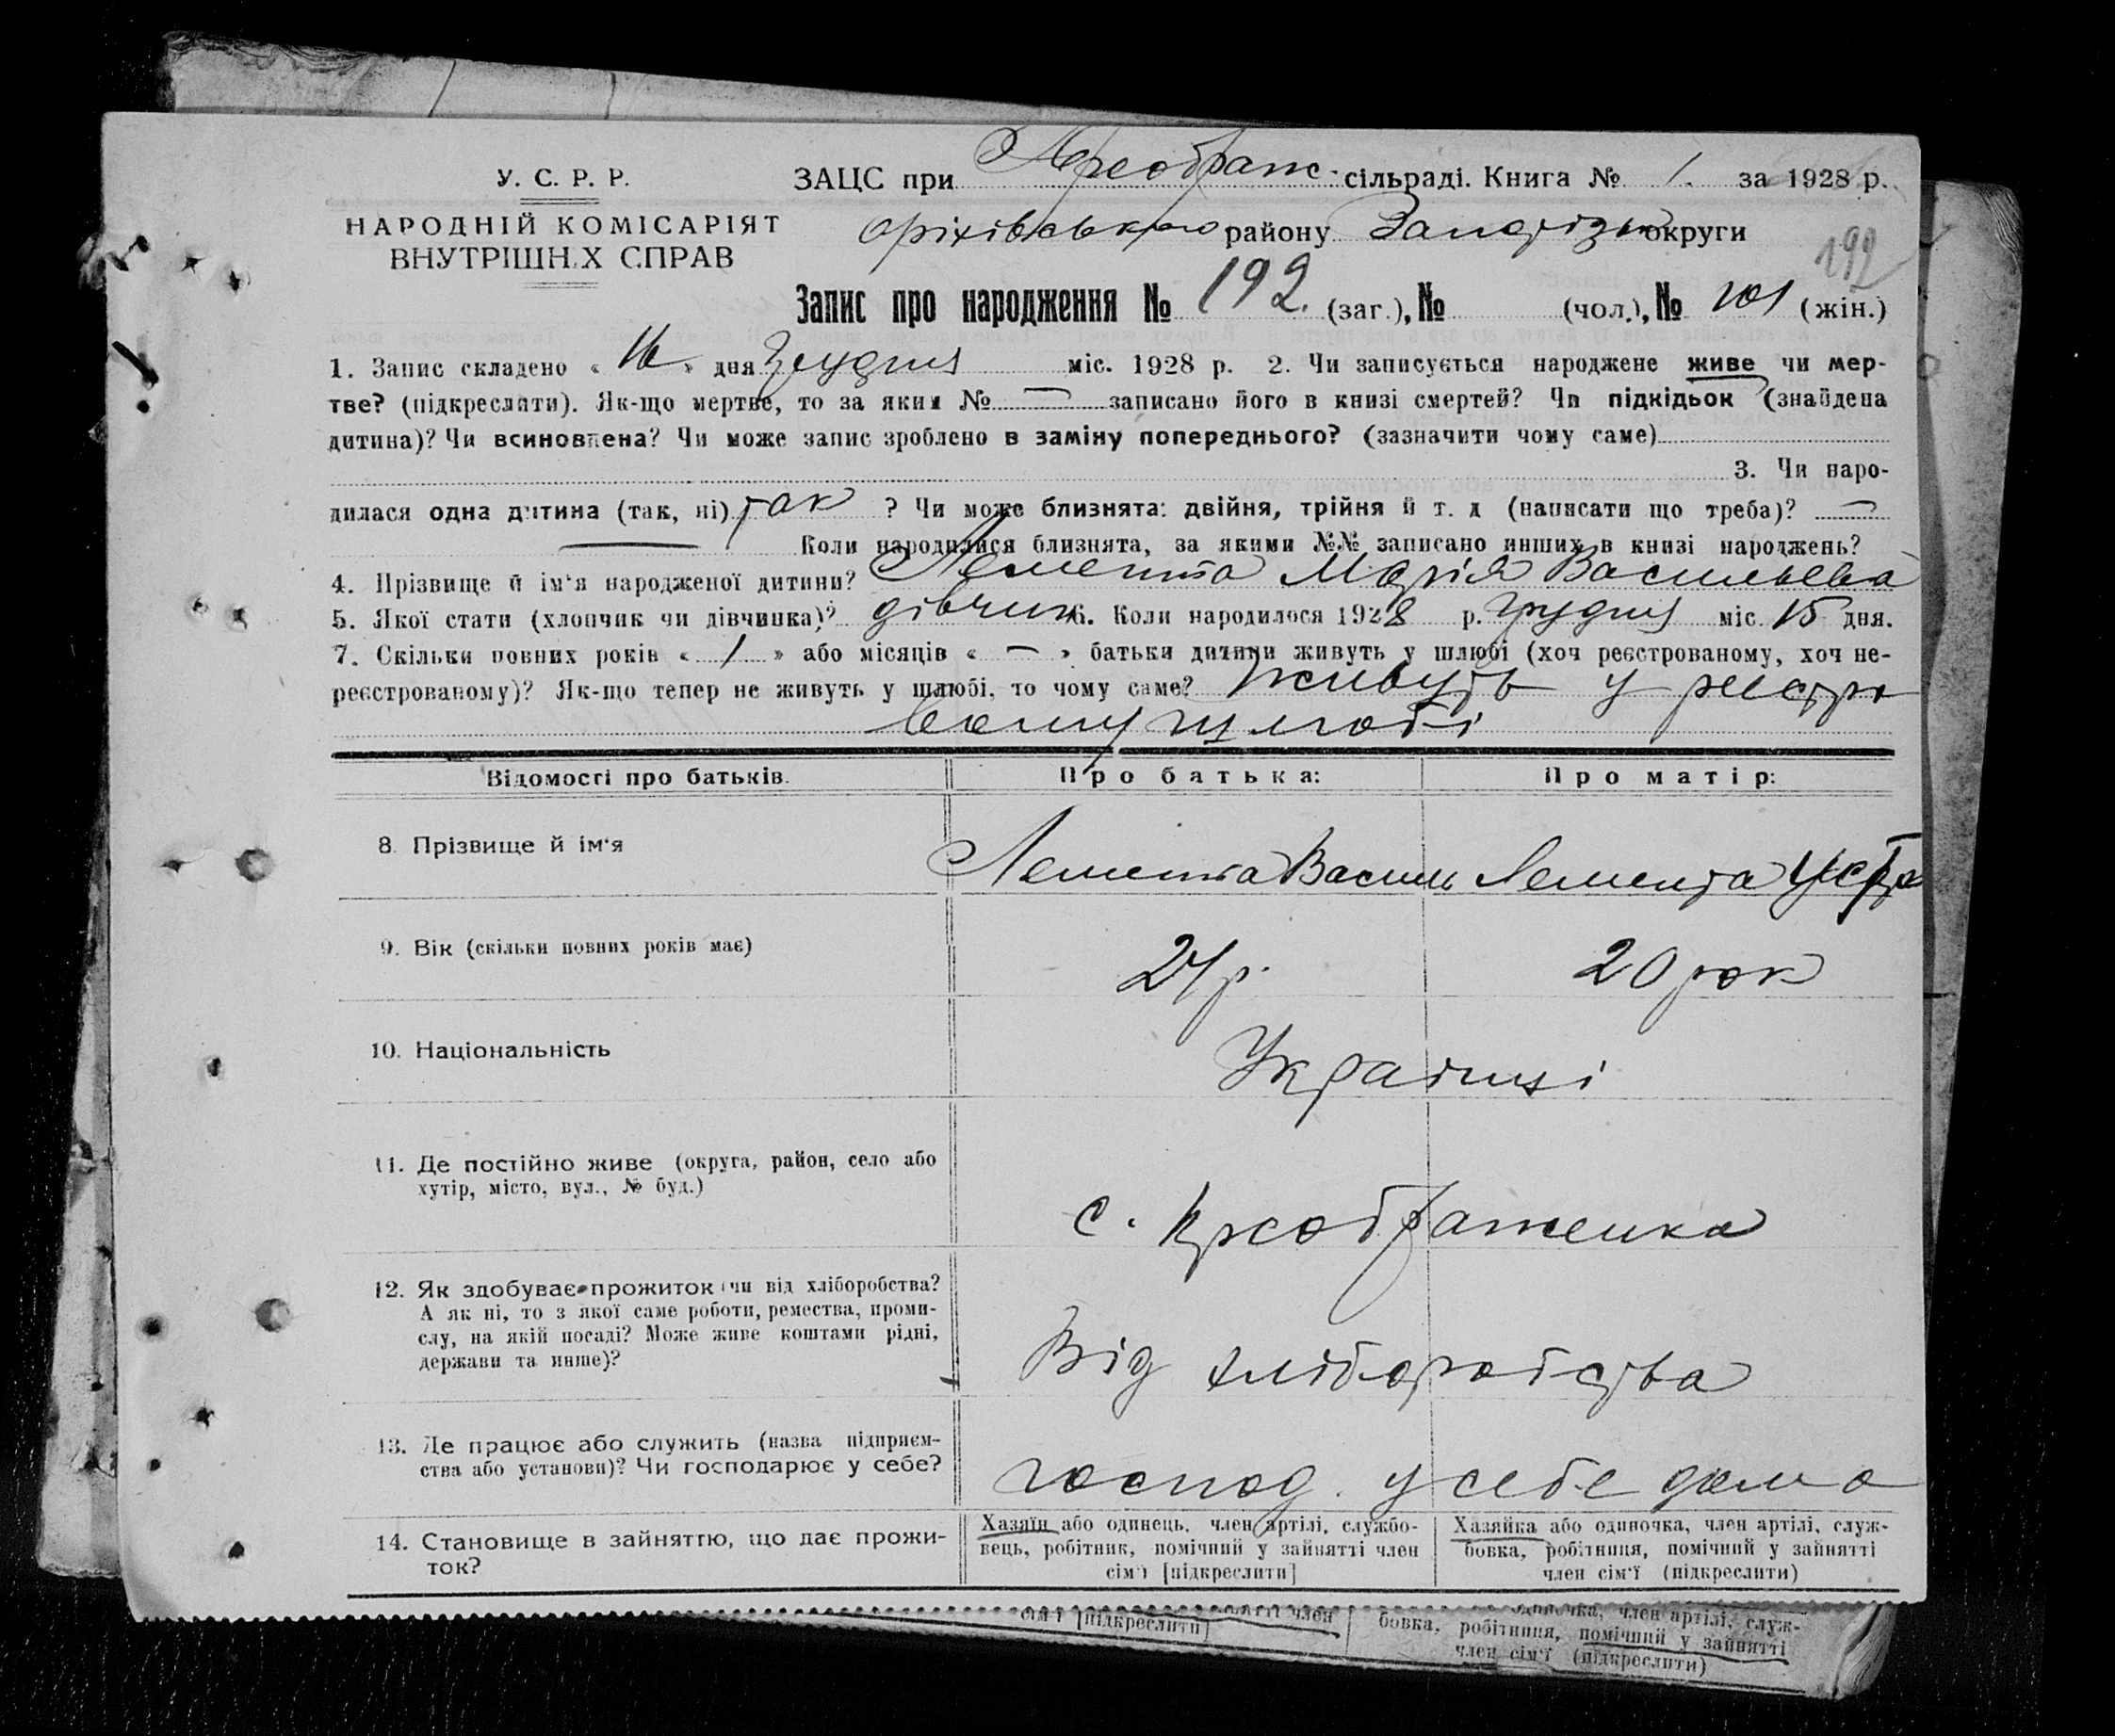 У. С. Р. Р.
НАРОДНІЙ КОМІСАРІЯТ
ВНУТРІШНІХ СПРАВ
ЗАЦС при Преображ. сільраді. Книга № 1. за 1928 р.
Оріхівського району Запоріжк округи
192
Запис про народження № 192. (заг.), № (чол.), № 101 (жін.)
1. Запис складено « 16 » дня грудня міс. 1928 р. 2. Чи записується народжене живе чи мер-
тве? (підкреслити). Як-що мертве, то за яким № — записано його в книзі смертей? Чи підкідьок (знайдена
дитина)? Чи всиновлена? Чи може запис зроблено в заміну попереднього? (зазначити чому саме)
3. Чи наро-
дилася одна дитина (так, ні) так ? Чи може близнята: двійня, трійня й т. д (написати що треба)? —
— Коли народилися близнята, за якими №№ записано инших в книзі народжень?
4. Прізвище й ім'я народженої дитини? Лемента Марія Васильева
5. Якої стати (хлопчик чи дівчинка)? дівчин 6. Коли народилося 1928 р. грудня міс. 15 дня.
7. Скільки повних років « 1 » або місяців « — » батьки дитини живуть у шлюбі (хоч реєстрованому, хоч не-
реєстрованому)? Як-що тепер не живуть у шлюбі, то чому саме? живуть у реєстро
ваному шлюбі
Відомості про батьків. Про батька: Про матір:
8. Прізвище й ім'я Лемента Василь Лемента
9. Вік (скільки повних років має) 21 р. 20 рок
10. Національність Українці
11. Де постійно живе (округа, район, село або
хутір, місто, вул., № буд.)
с. Преображенка
12. Як здобуває прожиток (чи від хліборобства?
А як ні, то з якої саме роботи, ремества, проми-
слу, на якій посаді? Може живе коштами рідні,
держави та инше)?
Від хліборобства
13. Де працює або служить (назва підприєм-
ства або установи)? Чи господарює у себе?
господ. у себе дома
14. Становище в зайняттю, що дає прожи-
ток?
Хазяїн або одинець, член артілі, службо-
вець, робітник, помічний у зайнятті член
сім'ї [підкреслити]
Хазяйка або одиночка, член артілі, служ-
бовка, робітниця, помічний у зайнятті
член сім'ї (підкреслити)
сім'ї [підкреслити]
одиночка, член артілі, служ-
бовка, робітниця, помічний у зайнятті
член сім'ї (підкреслити)